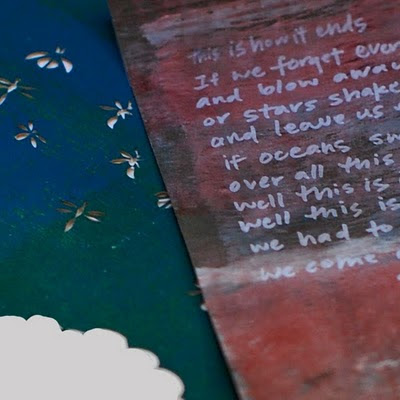 this is how it ends
If we forget
and blow away
or stars shake
and leave us
if oceans
over all this
well this is
well this is
we had to
we come